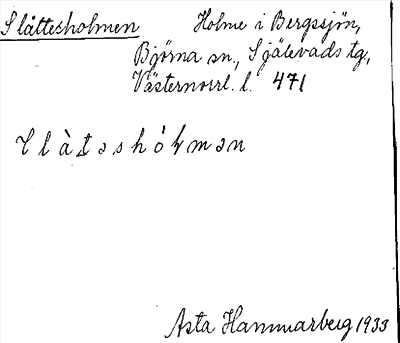 Slåttesholmen Holme i Bergssjön,
Björna sn., Själevads tg,
Västernorrl. l. 471
Asta Hammarberg 1933